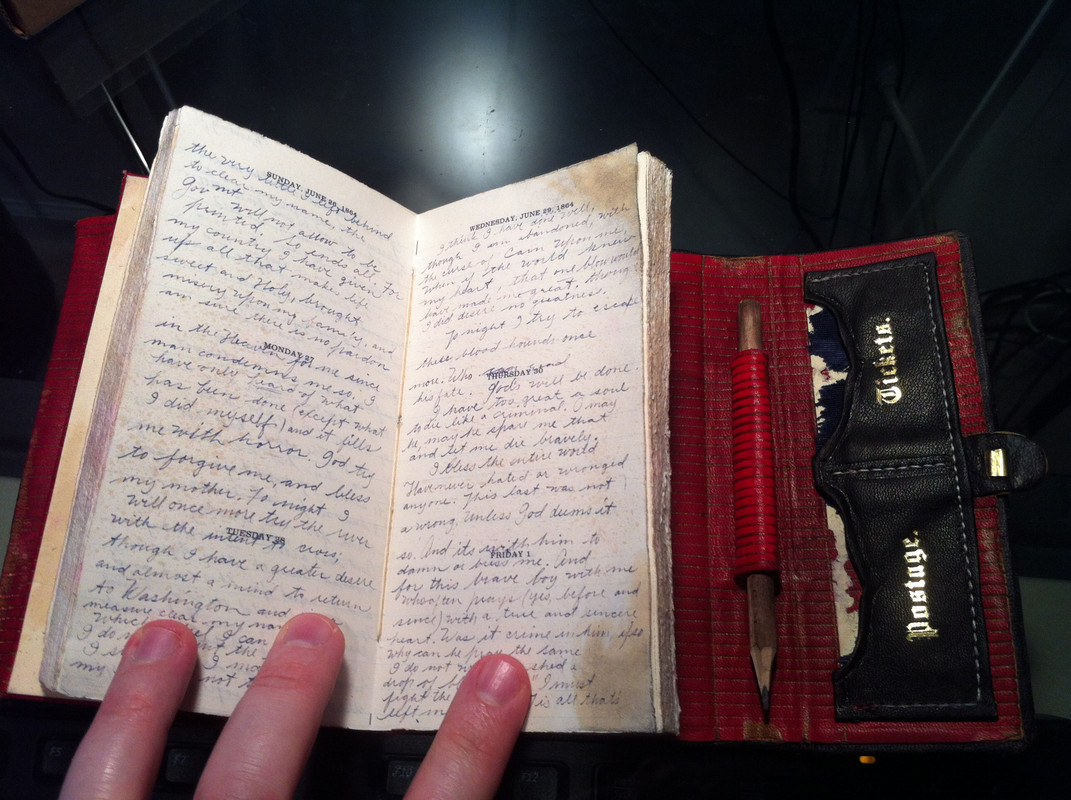 the very little I left behind
SUNDAY, JUNE 26, 1864
to clear my name, the
Gov'mt will not allow to be
printed. So ends all. For
my country I have given
up all that make life
sweet and Holy, brought
misery upon my family, and
am sure there is no pardon
in the Heaven for me since
MONDAY 27
man condemns me so. I
have only heard of what
has been done (except what
I did myself) and it fills
me with horror. God try
to forgive me, and bless
my mother. To night I
will once more try the river
with the intent to cross;
TUESDAY 28
though I have a greater desire
and almost a mind to return
to Washington and
measure clear my name
which I can
I do not the
I s I may
my not t
WEDNESDAY, JUNE 29, 1864
I think I have done well,
though I am abandoned, with
the curse of Cain upon me,
when if the world knew
my heart, that one blow would
have made me great, though
I did desire no greatness.
To night I try to escape
these blood hounds once
more. Who can read
THURSDAY 30
his fate. God's will be done.
I have too great a soul
to die like a criminal. O may
he, may he spare me that
and let me die bravely.
I bless the entire world
Have never hated or wronged
anyone. This last was not
a wrong, unless God deems it
so. And its with him to
FRIDAY 1
damn or bless me. And
for this brave boy with me
who often prays (yes, before and
since) with a true and sincere
heart. Was it crime in him, if so
why can he pray the same
I do not shed a
drop of bl I must
fight the Tis all thats
left m
Tickets.
Postage.